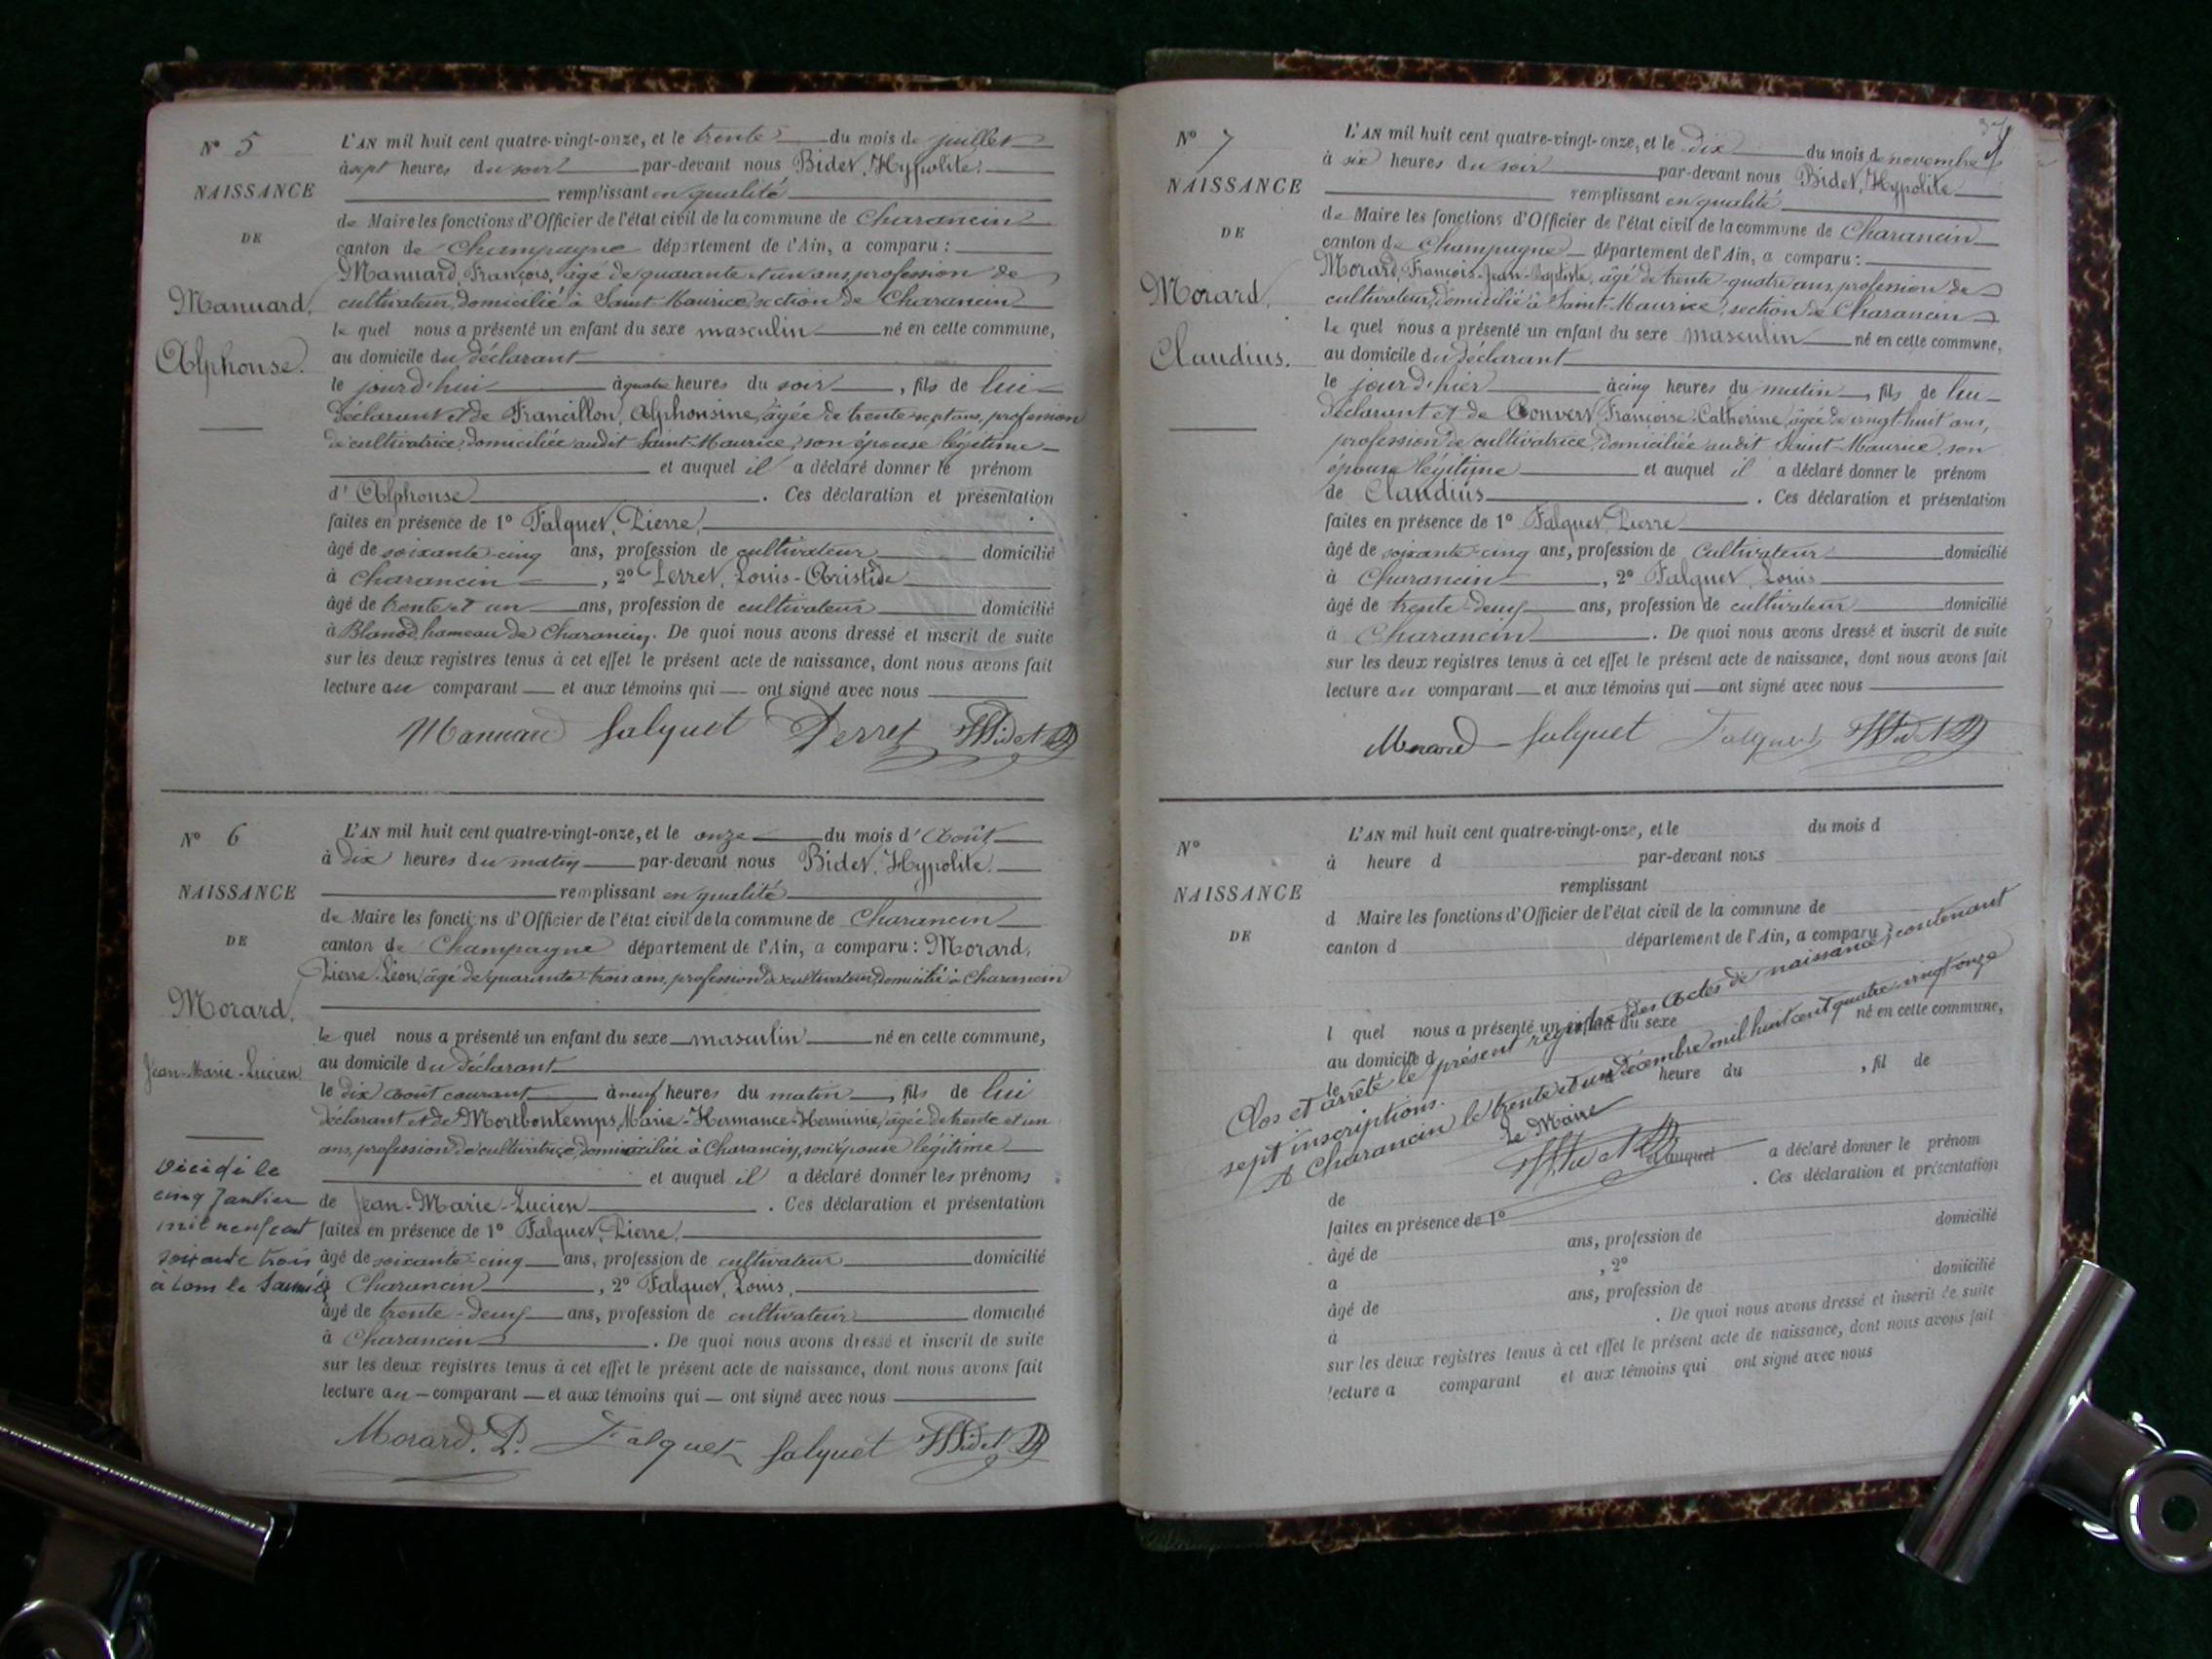 N° 5
NAISSANCE
DE
Manuard,
Alphonse.
L'AN mil huit cent quatre-vingt-onze, et le trente du mois de juillet
à sept heures du soir par-devant nous Bidet, Hypolite.
remplissant en qualité
de Maire les fonctions d'Officier de l'état civil de la commune de Charancin
canton de Champagne département de l'Ain, a comparu :
Manuard, François, âgé de quarante et un ans, profession de
cultivateur, domicilié à Saint-Maurice, section de Charancin
le quel nous a présenté un enfant du sexe masculin né en cette commune,
au domicile du déclarant
le jourd'hui à quatre heures du soir, fils de lui
déclarant et de Francillon, Alphonsine, âgée de trente-sept ans, profession
de cultivatrice, domiciliée audit Saint-Maurice, son épouse légitime
et auquel il a déclaré donner le prénom
d'Alphonse. Ces déclaration et présentation
faites en présence de 1° Falquet, Pierre,
âgé de soixante-cinq ans, profession de cultivateur domicilié
à Charancin, 2° Perret, Louis-Aristide
âgé de trente et un ans, profession de cultivateur domicilié
à Blanod, hameau de Charancin. De quoi nous avons dressé et inscrit de suite
sur les deux registres tenus à cet effet le présent acte de naissance, dont nous avons fait
lecture au comparant et aux témoins qui ont signé avec nous
Manuard falquet Perret HBidet
N° 6
NAISSANCE
DE
Morard,
Jean-Marie-Lucien
Décidé le
cinq Janvier
mil neuf cent
soixante trois
à Lons le Saunier
L'AN mil huit cent quatre-vingt-onze, et le onze du mois d'Août
à dix heures du matin par-devant nous Bidet, Hypolite.
remplissant en qualité
de Maire les fonctions d'Officier de l'état civil de la commune de Charancin
canton de Champagne département de l'Ain, a comparu : Morard,
Pierre-Léon, âgé de quarante-trois ans, profession de cultivateur, domicilié à Charancin
le quel nous a présenté un enfant du sexe masculin né en cette commune,
au domicile du déclarant
le dix août courant à neuf heures du matin, fils de lui
déclarant et de Montbontemps, Marie-Hermance-Herminie, âgée de trente et un
ans, profession de cultivatrice, domiciliée à Charancin, son épouse légitime
et auquel il a déclaré donner les prénoms
de Jean-Marie-Lucien. Ces déclaration et présentation
faites en présence de 1° Falquet, Pierre,
âgé de soixante-cinq ans, profession de cultivateur domicilié
à Charancin, 2° Falquet, Louis,
âgé de trente-deux ans, profession de cultivateur domicilié
à Charancin. De quoi nous avons dressé et inscrit de suite
sur les deux registres tenus à cet effet le présent acte de naissance, dont nous avons fait
lecture au comparant et aux témoins qui ont signé avec nous
Morard. P. Falquet falquet HBidet
N° 7
NAISSANCE
DE
Morard,
Claudius.
L'AN mil huit cent quatre-vingt-onze, et le dix du mois de novembre
à six heures du soir par-devant nous Bidet, Hypolite
remplissant en qualité
de Maire les fonctions d'Officier de l'état civil de la commune de Charancin
canton de Champagne département de l'Ain, a comparu :
Morard, François-Jean-Baptiste, âgé de trente-quatre ans, profession de
cultivateur, domicilié à Saint-Maurice, section de Charancin
le quel nous a présenté un enfant du sexe masculin né en cette commune,
au domicile du déclarant
le jour d'hier à cinq heures du matin, fils de lui
déclarant et de Convert, Françoise-Catherine, âgée de vingt-huit ans,
profession de cultivatrice, domiciliée audit Saint-Maurice, son
épouse légitime et auquel il a déclaré donner le prénom
de Claudius. Ces déclaration et présentation
faites en présence de 1° Falquet, Pierre
âgé de soixante-cinq ans, profession de Cultivateur domicilié
à Charancin, 2° Falquet, Louis
âgé de trente-deux ans, profession de cultivateur domicilié
à Charancin. De quoi nous avons dressé et inscrit de suite
sur les deux registres tenus à cet effet le présent acte de naissance, dont nous avons fait
lecture au comparant et aux témoins qui ont signé avec nous
Morard falquet Falquet HBidet
N°
NAISSANCE
DE
L'AN mil huit cent quatre-vingt-onze, et le du mois d
à heure d par-devant nous
remplissant
d Maire les fonctions d'Officier de l'état civil de la commune de
canton d département de l'Ain, a comparu :
l quel nous a présenté un enfant du sexe né en cette commune,
au domicile d
le heure du , fil de
Clos et arrêté le présent registre des Actes de naissance, contenant
sept inscriptions.
A Charancin le trente et un décembre mil huit cent quatre-vingt-onze
Le Maire
HBidet
et auquel a déclaré donner le prénom
de . Ces déclaration et présentation
faites en présence de 1°
âgé de ans, profession de domicilié
à , 2°
âgé de ans, profession de domicilié
à . De quoi nous avons dressé et inscrit de suite
sur les deux registres tenus à cet effet le présent acte de naissance, dont nous avons fait
lecture a comparant et aux témoins qui ont signé avec nous